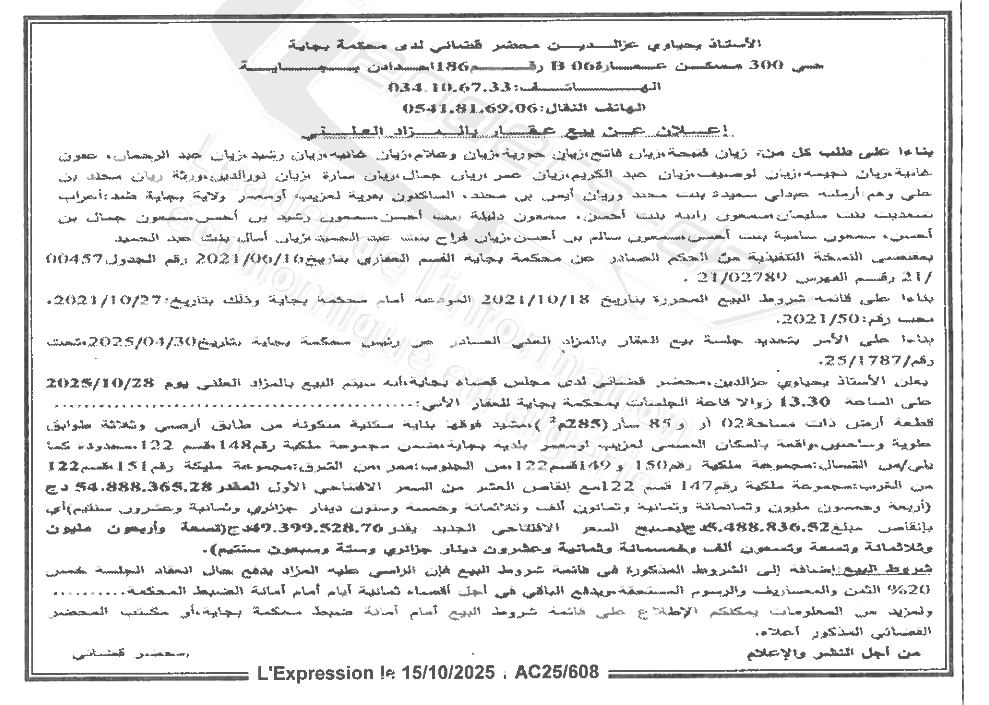 الأستاذ يحياوي عزالدين محضر قضائي لدى محكمة بجاية
حي 300 مسكن عمارة B 06 رقم 186 احدادن بجاية
الهاتف:034.10.67.33
الهاتف النقال:0541.81.69.06
إعلان عن بيع عقار بالمزاد العلني
بناءا على طلب كل من: زيان فتيحة،زيان فاتح،زيان حورية،زيان وعلام،زيان غانية،زيان رشيد،زيان عبد الرحمان،
غانية،زيان نجيمة،زيان لوصيف،زيان عبد الكريم،زيان عمر،زيان جمال،زيان سارة ،زيان نورالدين،ورثة زيان محند بن
علي وهم:أرملته عبدلي سعيدة بنت محند وزيان أيمن بن محند، الساكنون بقرية لعزيب، أوسمر ولاية بجاية ضد:أعراب
سعديت بنت سليمان،سمعون رانية بنت أحسن، سمعون دليلة بنت أحسن،سمعون رشيد بن أحسن،سمعون جمال بن
أحسن، سمعون سامية بنت أحسن،سمعون سالم بن أحسن،زيان فراح بنت عبد الحميد،زيان أمال بنت عبد الحميد
بمقتضى النسخة التنفيذية من الحكم الصادر عن محكمة بجاية القسم العقاري بتاريخ 2021/06/16 رقم الجدول 00457
/21 رقم الفهرس 21/02789 .
بناءا على قائمة شروط البيع المحررة بتاريخ 2021/10/18 المودعة أمام محكمة بجاية وذلك بتاريخ:2021/10/27،
تحت رقم:2021/50.
بناءا على الأمر بتحديد جلسة بيع العقار بالمزاد العلني الصادر عن رئيس محكمة بجاية بتاريخ 2025/04/30،تحت
رقم/25/1787.
يعلن الأستاذ يحياوي عزالدين،محضر قضائي لدى مجلس قضاء بجاية،أنه سيتم البيع بالمزاد العلني يوم 2025/10/28
على الساعة 13.30 زوالا قاعة الجلسات بمحكمة بجاية للعقار الآتي:..............................
قطعة أرض ذات مساحة 02 آر و 85 سآر (285م²)،مشيد فوقها بناية سكنية متكونة من طابق أرضي وثلاثة طوابق
علوية وساحتين،واقعة بالمكان المسمى لعزيب أوسمر بلدية بجاية،ضمن مجموعة ملكية رقم 148،قسم 122،محدودة كما
يلي/من الشمال:مجموعة ملكية رقم 150 و149 قسم 122،من الجنوب:ممر،من الشرق:مجموعة مليكة رقم 151،قسم 122
من الغرب:مجموعة ملكية رقم 147 قسم 122،مع إنقاص العشر من السعر الافتتاحي الأول المقدر 54.888.365.28 دج
(أربعة وخمسون مليون وثمانمائة وثمانية وثمانون ألف وثلاثمائة وخمسة وستون دينار جزائري وثمانية وعشرون سنتيم)أي
بإنقاص مبلغ 5.488.836.52دج ليصبح السعر الافتتاحي الجديد يقدر 49.399.528.76دج(تسعة وأربعون مليون
وثلاثمائة وتسعة وتسعون ألف وخمسمائة وثمانية وعشرون دينار جزائري وستة وسبعون سنتيم).
شروط البيع:إضافة إلى الشروط المذكورة في قائمة شروط البيع فإن الراسي عليه المزاد يدفع حال انعقاد الجلسة خمس
20% الثمن والمصاريف والرسوم المستحقة،ويدفع الباقي في أجل أقصاه ثمانية أيام أمام أمانة الضبط المحكمة..........
ولمزيد من المعلومات يمكنكم الإطلاع على قائمة شروط البيع أمام أمانة ضبط محكمة بجاية،أو مكتب المحضر
القضائي المذكور أعلاه.
من أجل النشر والإعلام
محضر قضائي
L'Expression le 15/10/2025 , AC25/608